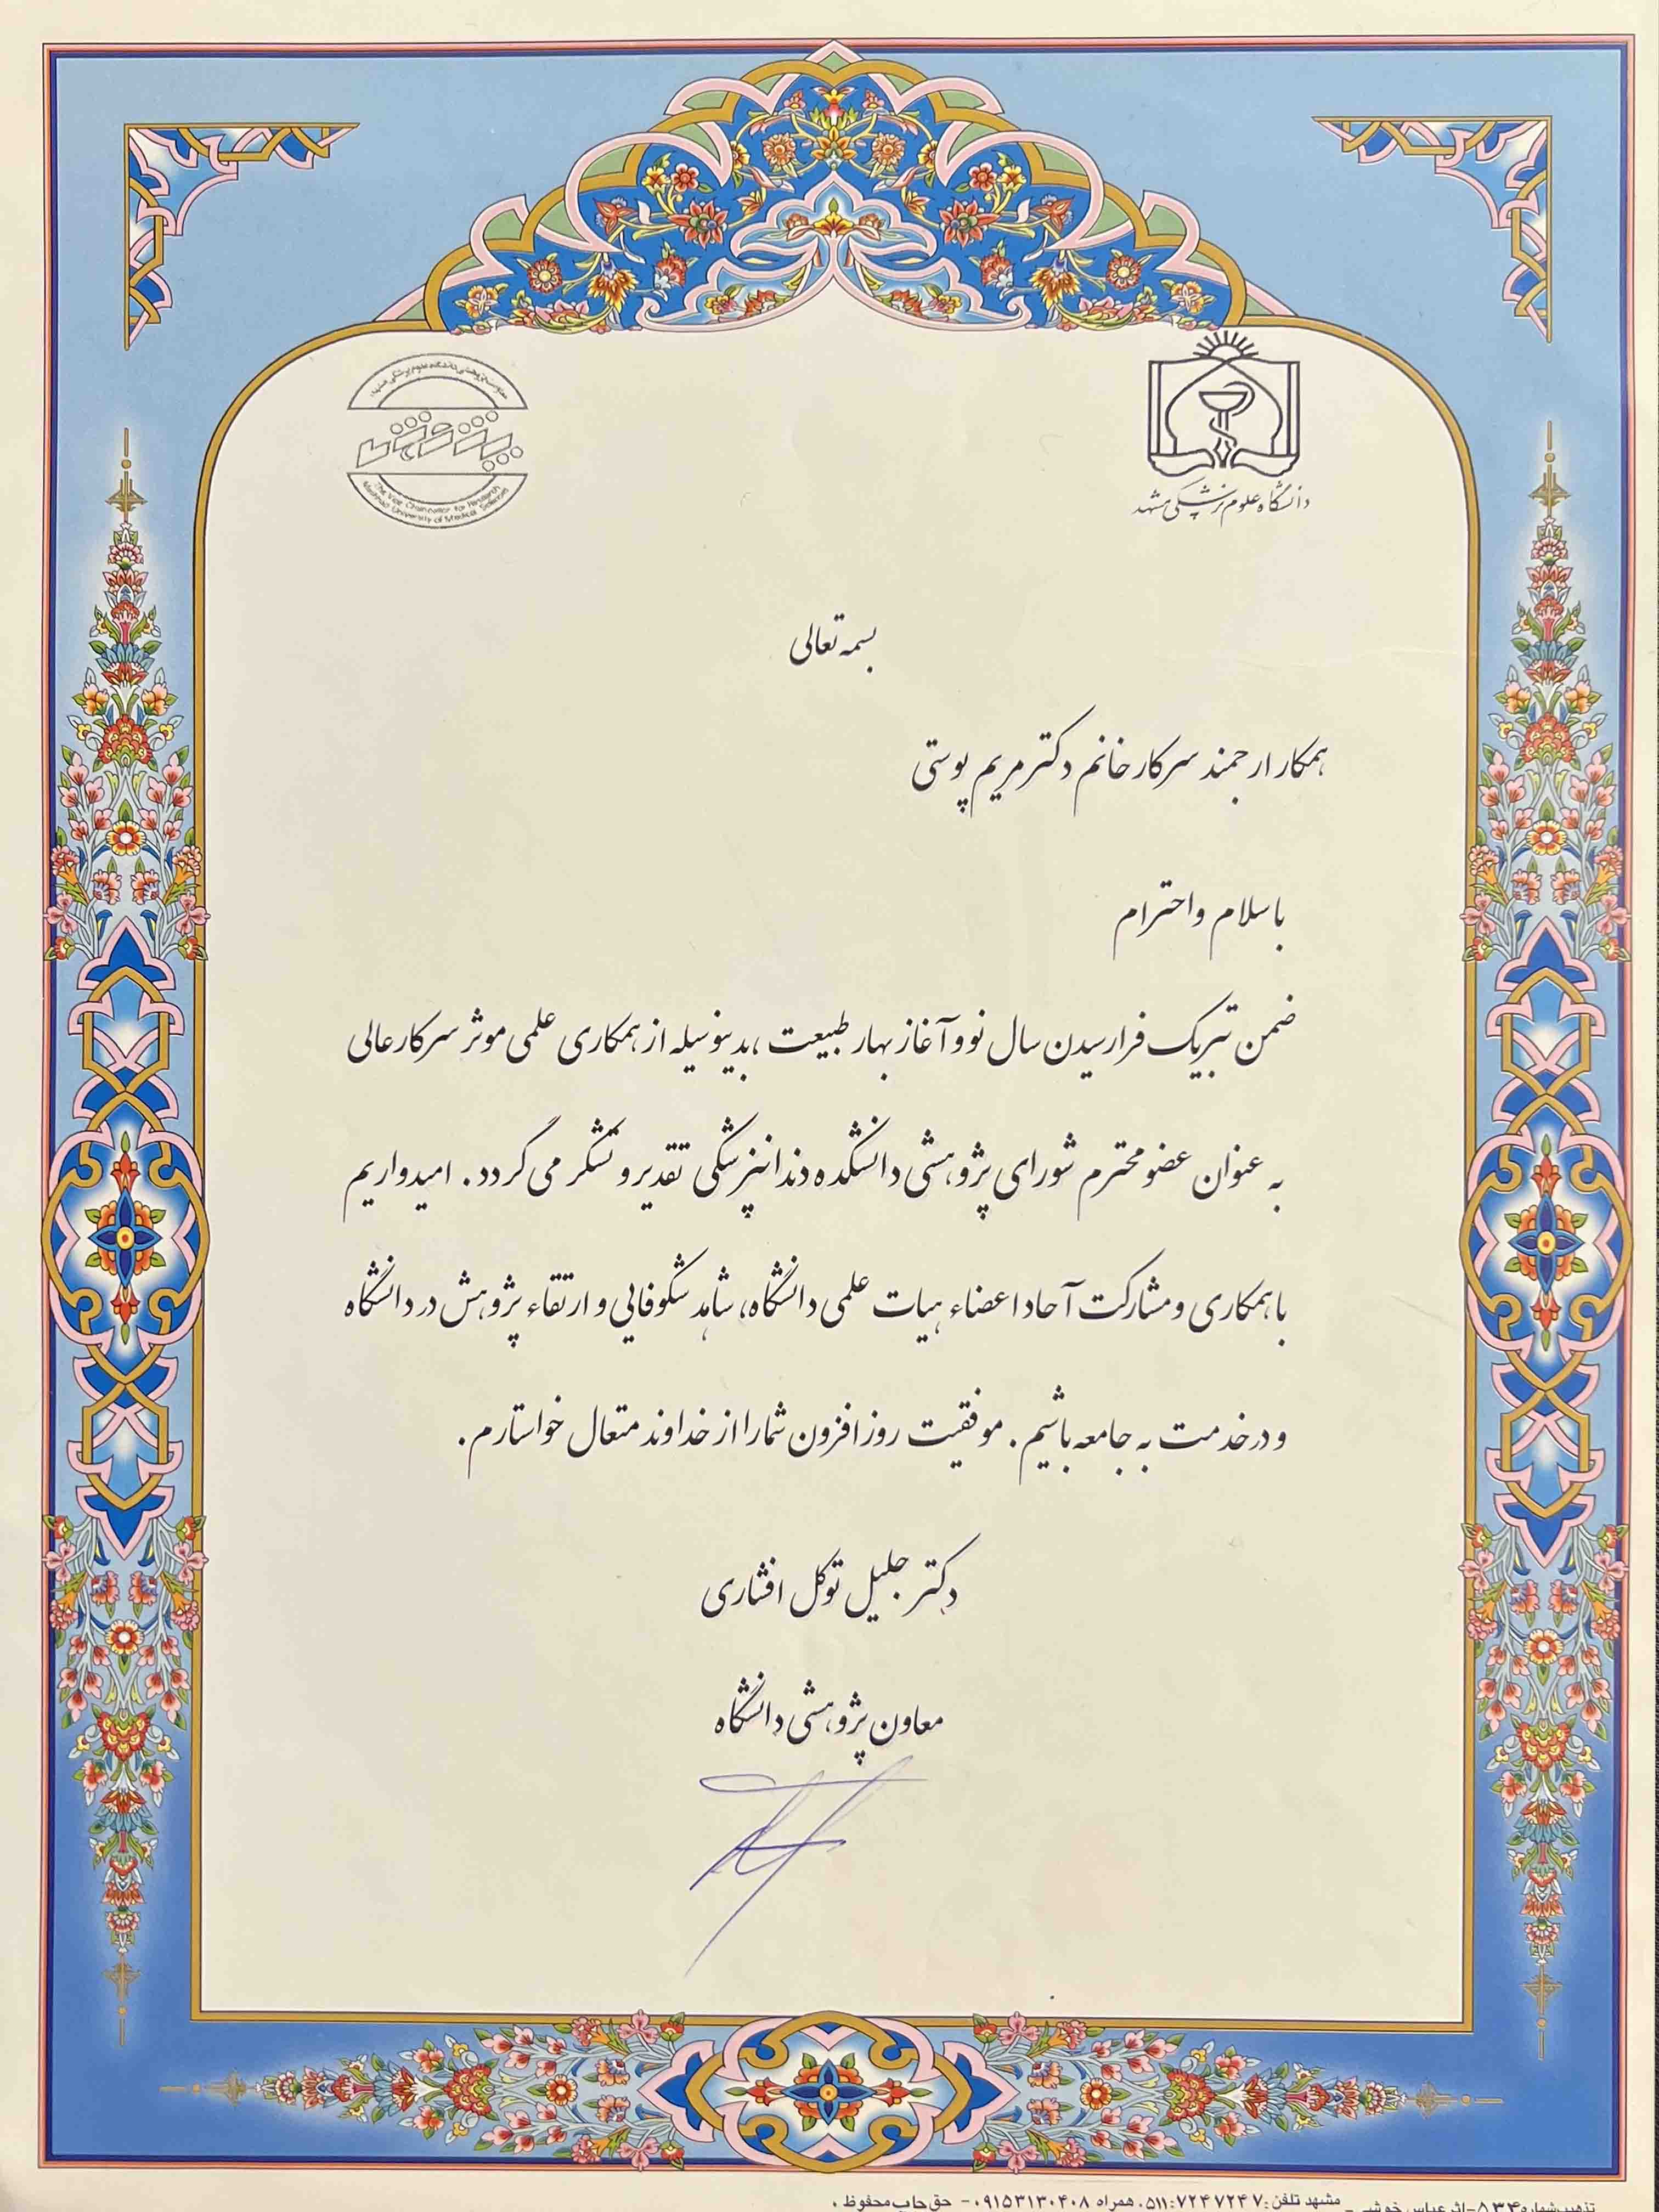 دانشگاه علوم پزشکی مشهد
پژوهش
The Vice Chancellor for Research
Mashhad University of Medical Sciences
بسمه تعالی
همکار ارجمند سرکار خانم دکتر مریم پوستی
با سلام و احترام
ضمن تبریک فرارسیدن سال نو و آغاز بهار طبیعت ، بدینوسیله از همکاری علمی موثر سرکار عالی
به عنوان عضو محترم شورای پژوهشی دانشکده دندانپزشکی تقدیر و تشکر می گردد . امیدواریم
با همکاری و مشارکت آحاد اعضاء هیات علمی دانشگاه، شاهد شکوفایی و ارتقاء پژوهش در دانشگاه
و در خدمت به جامعه باشیم . موفقیت روز افزون شما را از خداوند متعال خواستارم .
دکتر جلیل توکل افشاری
معاون پژوهشی دانشگاه
مشهد تلفن: ۷۲۴۷۲۴۷: ۵۱۱. همراه ۰۹۱۵۳۱۳۰۴۰۸ - حق چاپ محفوظ .